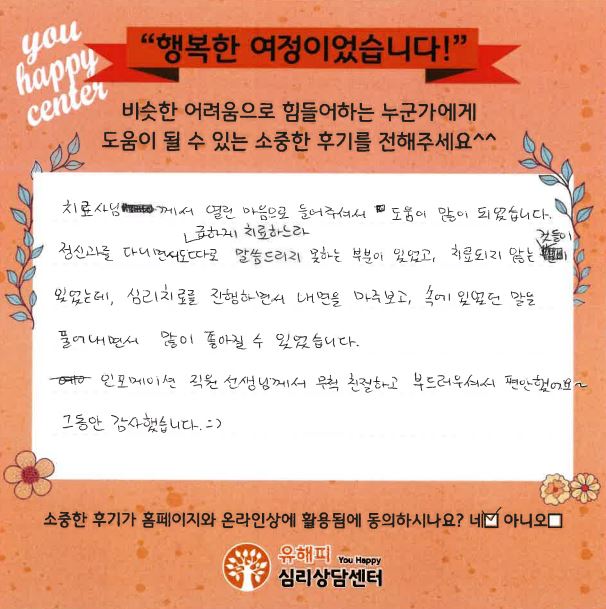 you
happy
center
“행복한 여정이었습니다!”
비슷한 어려움으로 힘들어하는 누군가에게
도움이 될 수 있는 소중한 후기를 전해주세요^^
치료사님께서 열린 마음으로 들어주셔서 도움이 많이 되었습니다.
급하게 치료하느라
정신과를 다니면서도 따로 말씀드리지 못하는 부분이 있었고, 치료되지 않는 것들이
있었는데, 심리치료를 진행하면서 내면을 마주보고, 속에 있었던 말을
풀어내면서 많이 좋아질 수 있었습니다.
인포메이션 직원 선생님께서 무척 친절하고 부드러우셔서 편안했어요~
그동안 감사했습니다. =)
소중한 후기가 홈페이지와 온라인상에 활용됨에 동의하시나요? 네☑ 아니오☐
유해피 You Happy
심리상담센터